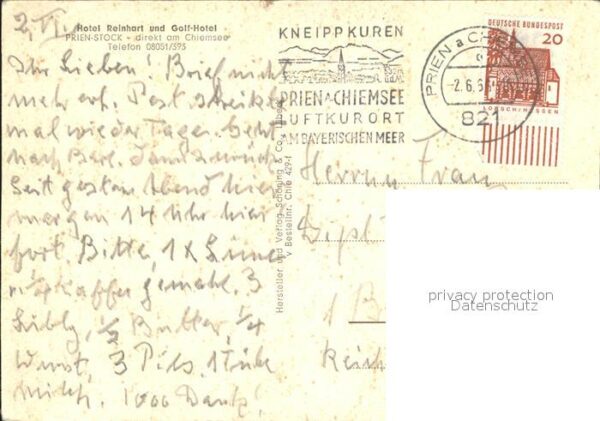 2. VI.
Hotel Reinhart und Golf-Hotel
PRIEN-STOCK - direkt am Chiemsee
Telefon 08051/595
Ihr Lieben! Brief nicht
mehr erh. Post streikte
mal wieder Tage. Geht
nach Berl. dann zurück
Seit gestern Abend hier
morgen 14 Uhr hier
fort. Bitte, 1 X
Kaffee gemahl. 3
1/2 Butter, 1/4
Wurst, 3 Pils, 1 Tüte
Milch. 1000 Dank!
Hersteller und Verlag Schöning & Co.
Bestellnr. Chie 429
KNEIPPKUREN
PRIEN A CHIEMSEE
LUFTKURORT
AM BAYERISCHEN MEER
PRIEN a CHIEMSEE
-2.6.6
821
DEUTSCHE BUNDESPOST
20
LORSCH/HESSEN
Herrn u Frau
Dipl
1 B
Reich
privacy protection
Datenschutz